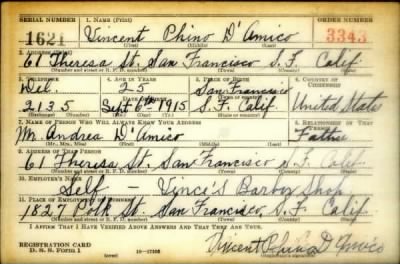 SERIAL NUMBER 1. NAME (Print) ORDER NUMBER
1621 Vincent Phino D'Amico 3343
(First) (Middle) (Last)
2. ADDRESS (Print)
61 Theresa St. San Francisco S.F. Calif.
(Number and street or R. F. D. number) (Town) (County) (State)
3. TELEPHONE 4. AGE IN YEARS 5. PLACE OF BIRTH 6. COUNTRY OF CITIZENSHIP
Del. 25 San Francisco
2135 Sept 6th 1915 S.F. Calif. United States
(Exchange) (Number) (Mo.) (Day) (Yr.) (State or country)
7. NAME OF PERSON WHO WILL ALWAYS KNOW YOUR ADDRESS 8. RELATIONSHIP OF THAT PERSON
Mr. Andrea D'Amico Father
(Mr., Mrs., Miss) (First) (Middle) (Last)
9. ADDRESS OF THAT PERSON
61 Theresa St. San Francisco S.F. Calif.
(Number and street or R. F. D. number) (Town) (County) (State)
10. EMPLOYER'S NAME
Self - Vince's Barber Shop
11. PLACE OF EMPLOYMENT OR BUSINESS
1827 Polk St. San Francisco, S.F. Calif.
(Number and street or R. F. D. number) (Town) (County) (State)
I AFFIRM THAT I HAVE VERIFIED ABOVE ANSWERS AND THAT THEY ARE TRUE.
REGISTRATION CARD
D. S. S. FORM 1 (over) Vincent Phino D'Amico
(Registrant's signature)